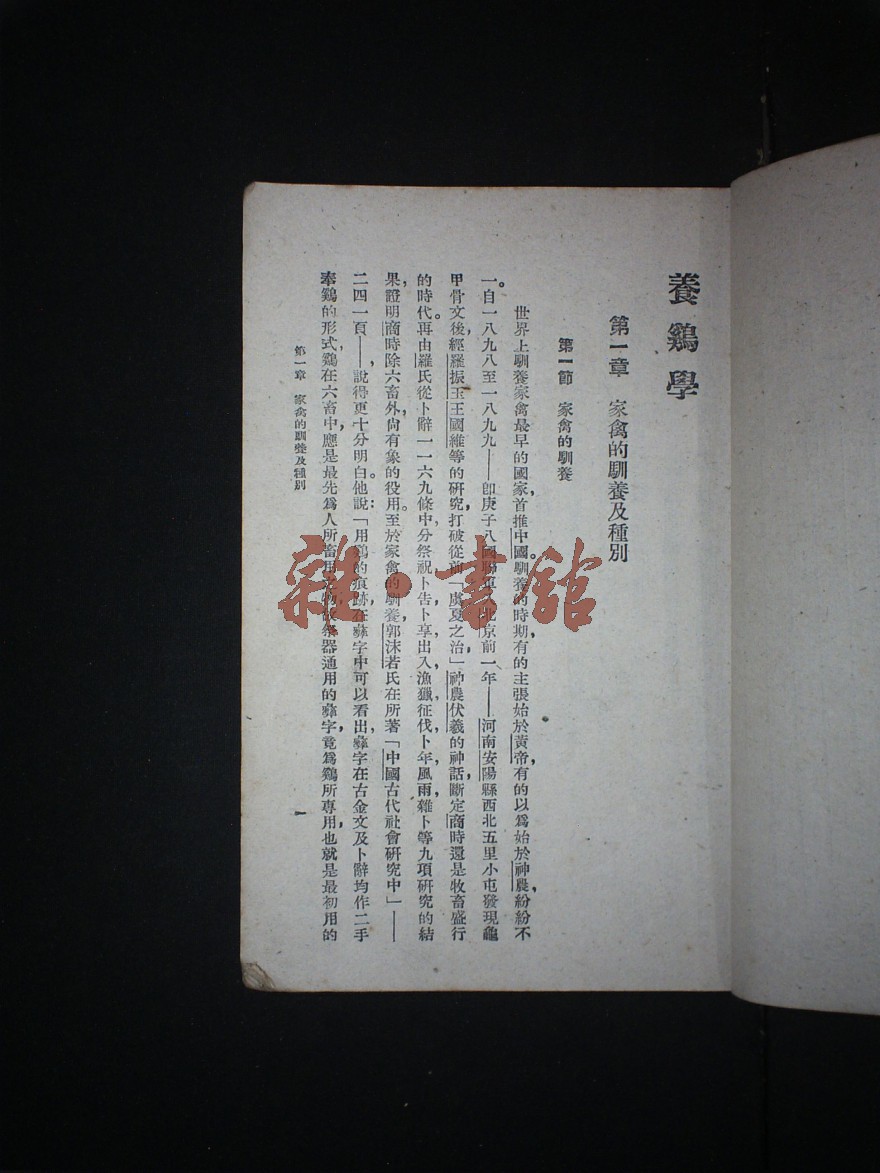 養鷄學
第一章　家禽的馴養及種別
第一節　家禽的馴養
世界上馴養家禽最早的國家，首推中國。馴養的時期，有的主張始於黃帝，有的以爲始於神農，紛紛不
一。自一八九八至一八九九——卽庚子八國聯軍北京前一年——河南安陽縣西北五里小屯發現龜
甲骨文後，經羅振玉王國維等的硏究，打破從前「虞夏之治」，神農伏羲的神話，斷定商時還是牧畜盛行
的時代。再由羅氏從卜辭一一六九條中，分祭祝，卜告，卜享，出入，漁獵，征伐，卜年，風雨，雜卜等九項硏究的結
果，證明商時除六畜外，尙有象的役用。至於家禽的馴養，郭沫若氏在所著「中國古代社會硏究中」——
二四一頁——，說得更十分明白。他說：「用鷄的痕跡，在彝字中可以看出，彝字在古金文及卜辭均作二手
奉鷄的形式，鷄在六畜中，應是最先爲人所畜用之物，故祭器通用的彝字，竟爲鷄所專用，也就是最初用的
第一章　家禽的馴養及種別
一
雜·書館